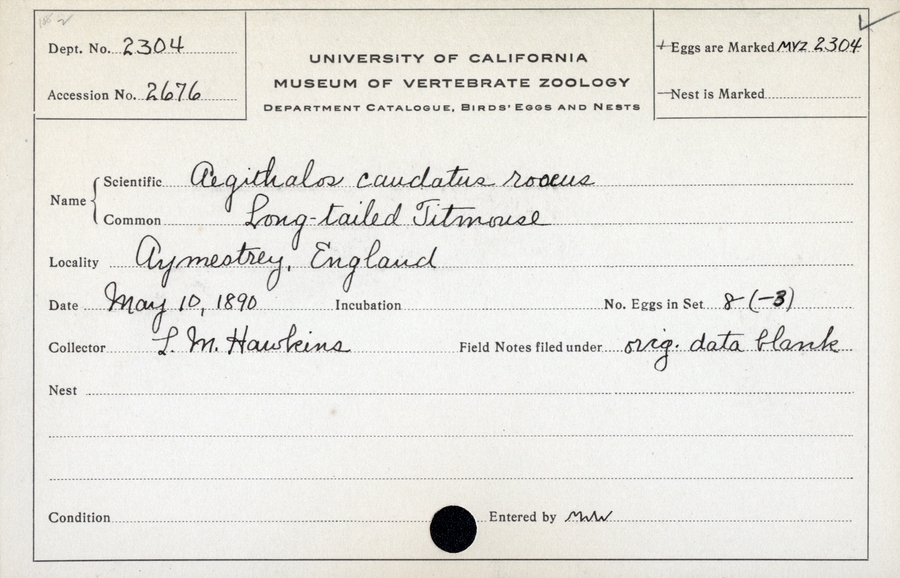 Dept. No. 2304
Accession No. 2676
UNIVERSITY OF CALIFORNIA
MUSEUM OF VERTEBRATE ZOOLOGY
DEPARTMENT CATALOGUE, BIRDS' EGGS AND NESTS
+ Eggs are Marked MVZ 2304
— Nest is Marked
Name
Scientific Aegithalos caudatus roaeus
Common Long-tailed Titmouse
Locality Aymestrey, England
Date May 10, 1890 Incubation No. Eggs in Set 8 (-3)
Collector L. M. Hawkins Field Notes filed under orig. data blank
Nest
Condition Entered by